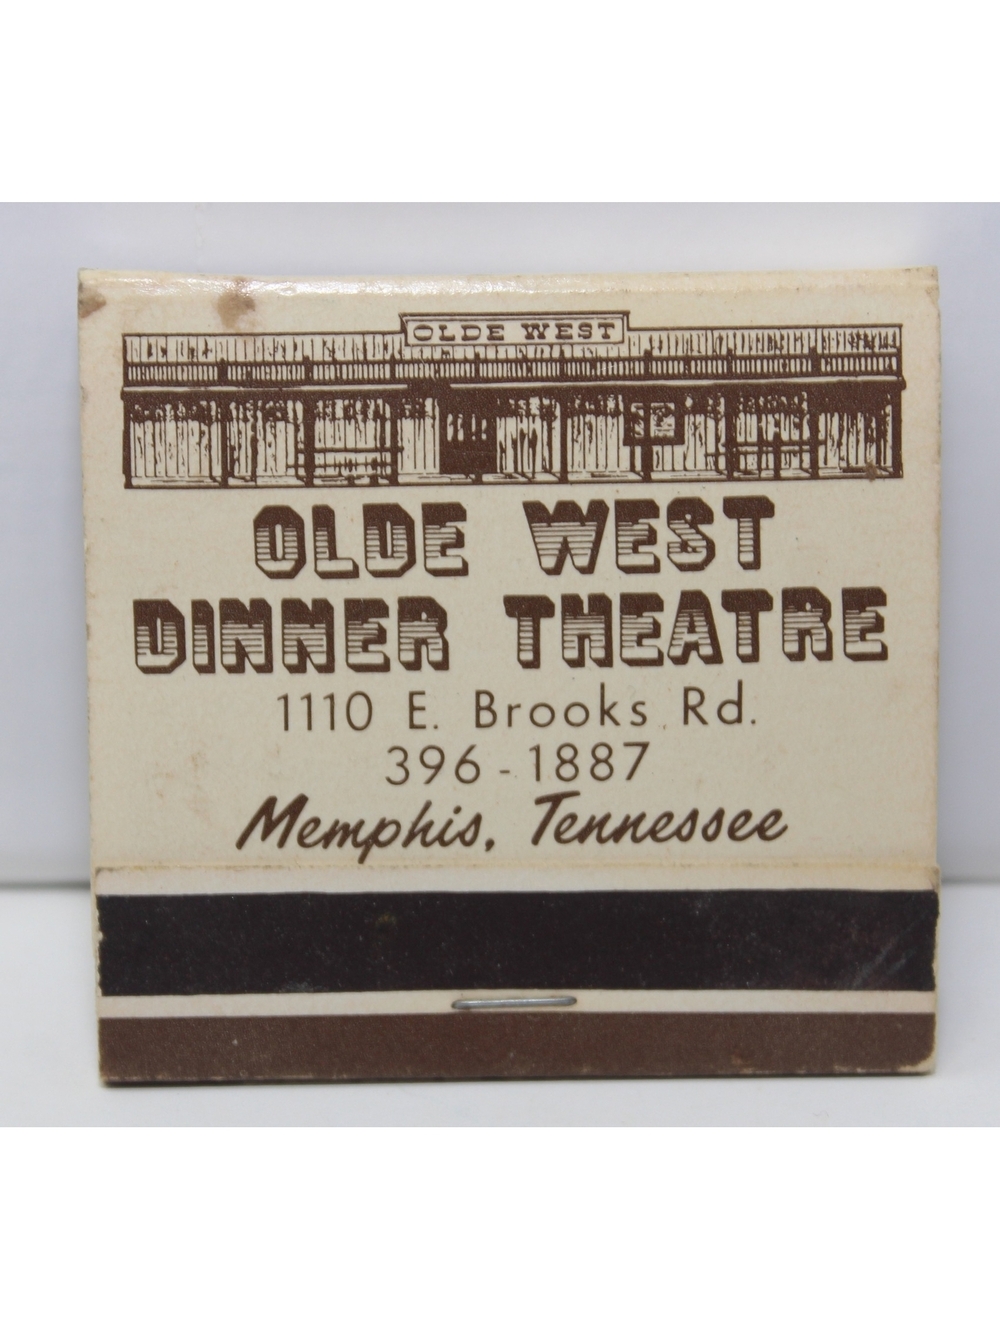 OLDE WEST
OLDE WEST
DINNER THEATRE
1110 E. Brooks Rd.
396-1887
Memphis, Tennessee